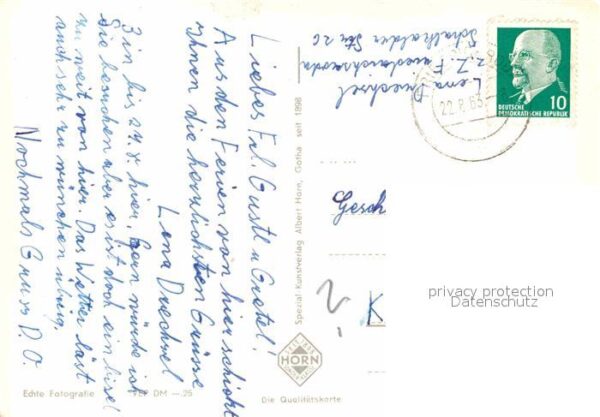 Liebes Frl. Gustl u Gretel!
Aus den Ferien von hier schickt
Ihnen die herzlichsten Grüsse
Lena Drechsel
Bin bis 24.8. hier, gern würde ich
Sie besuchen aber es ist doch ein bissel
zu weit von hier. Das Wetter läst
auch sehr zu wünschen übrig.
Nochmals Gruss D. O.
Lena Drechsel
z. Z. F
Str 26
22.8.65
DEUTSCHE
DEMOKRATISCHE REPUBLIK
10
Gesch
K
privacy protection
Datenschutz
Spezial-Kunstverlag Albert Horn, Gotha seit 1898
HORN
Die Qualitätskarte
Echte Fotografie
VEP DM —.25